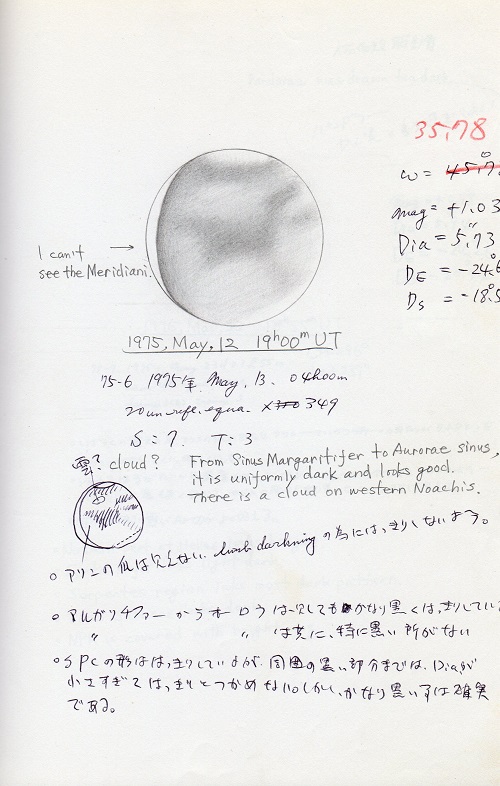 35.78
ω = 45.7
mag = +1.03
Dia = 5.″73
DE = −24.°6
Ds = −18.°5
I can't
see the Meridiani.
1975, May, 12 19h00m UT
75-6 1975年 May, 13. 04h00m
20cm refl. equa. × 349
S: 7. T: 3
雲? cloud? From Sinus Margaritifer to Aurorae sinus,
it is uniformly dark and looks good.
There is a cloud on western Noachis.
○ アリンの爪は見えない. limb darkning の為にはっきりしない様う。
○ マルガリチファー からオーロラ は かなり黒くはっきりしてい
〃 〃 は共に、特に黒い所がない
○ SPCの形ははっきりしているが、周囲の黒い部分までは、Diaが
小さすぎてはっきりとつかめない。しかし、かなり黒い事は確実
である。